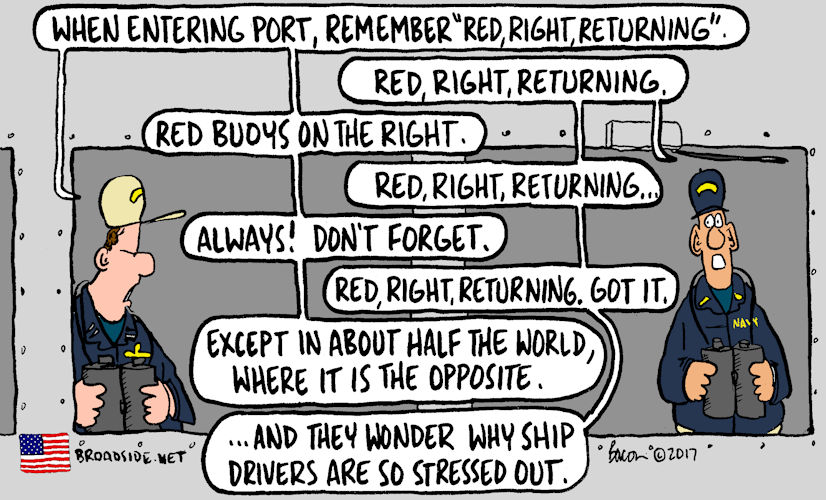 WHEN ENTERING PORT, REMEMBER "RED, RIGHT, RETURNING".
RED, RIGHT, RETURNING.
RED BUOYS ON THE RIGHT.
RED, RIGHT, RETURNING...
ALWAYS! DON'T FORGET.
RED, RIGHT, RETURNING. GOT IT.
EXCEPT IN ABOUT HALF THE WORLD,
WHERE IT IS THE OPPOSITE.
...AND THEY WONDER WHY SHIP
DRIVERS ARE SO STRESSED OUT.
NAVY
BROADSIDE.NET
Bacon ©2017